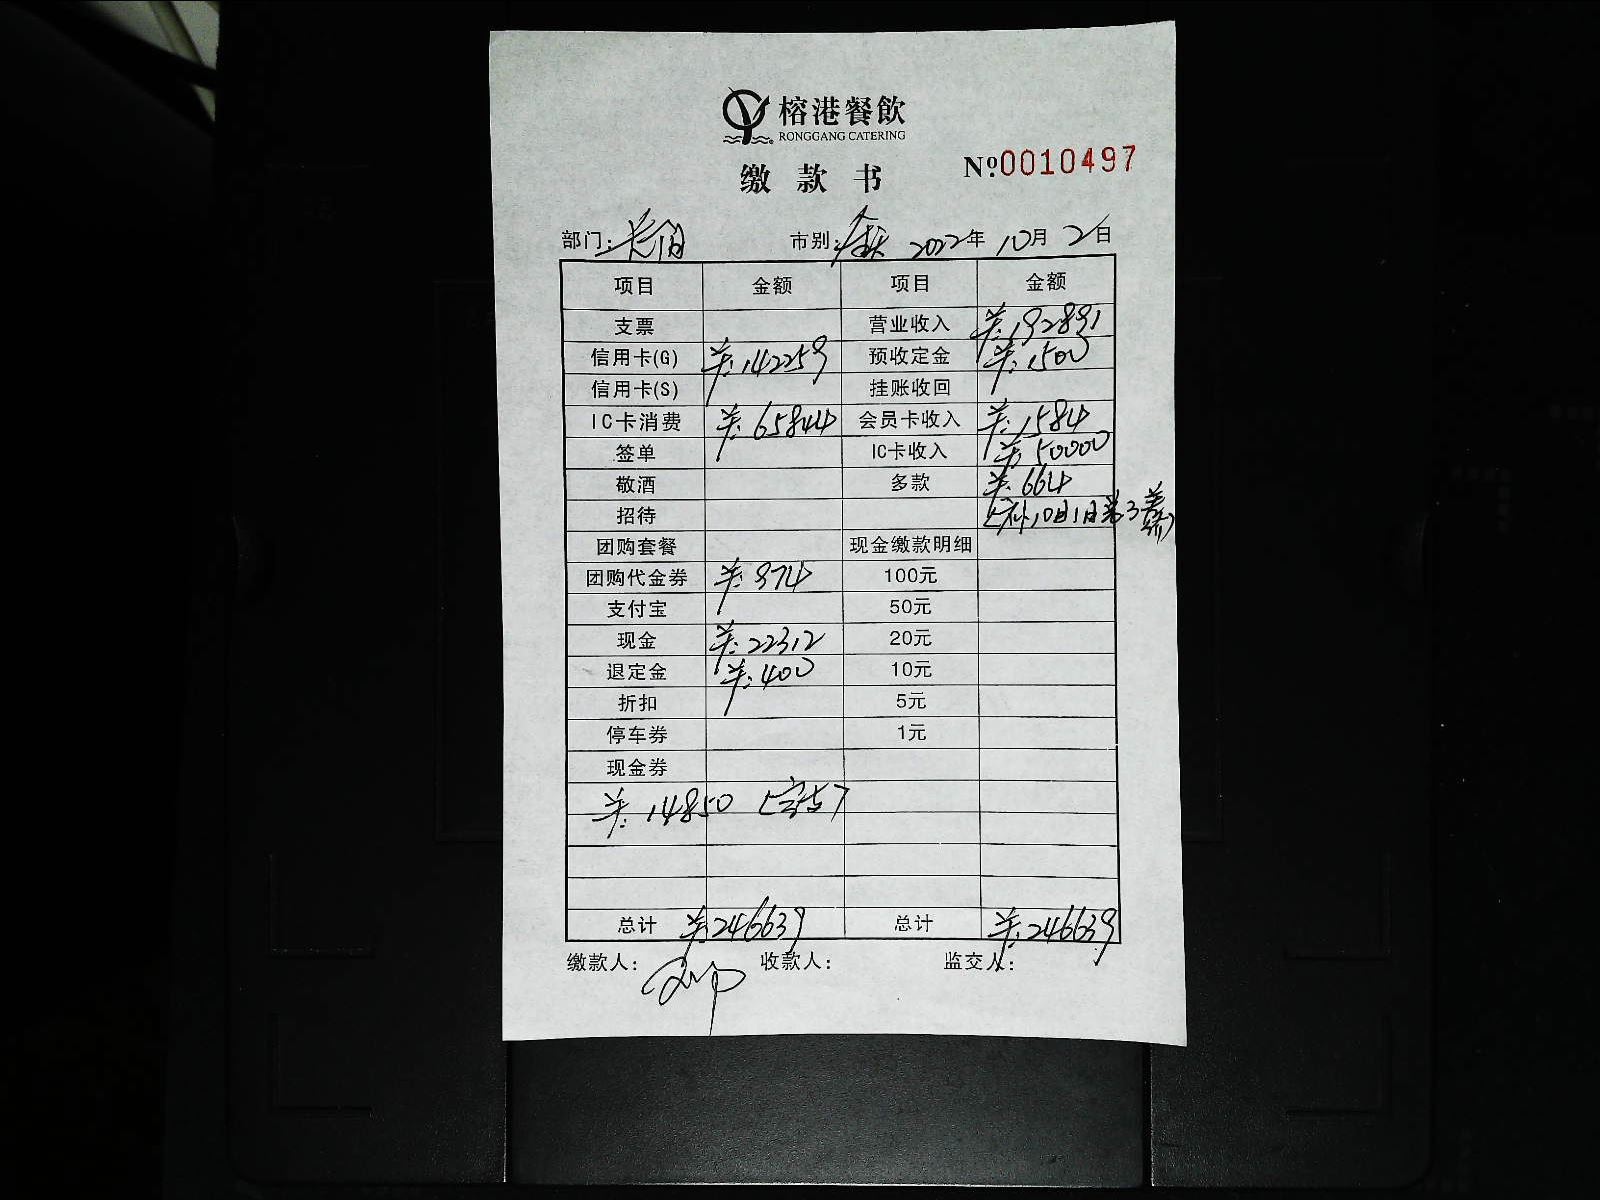 榕港餐飲
RONGGANG CATERING
缴款书
№0010497
部门: 市别:全天 2022年10月2日
项目 金额 项目 金额
支票 营业收入 ¥:192891
信用卡(G) ¥:142259 预收定金 ¥:1500
信用卡(S) 挂账收回
IC卡消费 ¥:65844 会员卡收入 ¥:1584
签单 IC卡收入 ¥:50000
敬酒 多款 ¥:664
招待 补10月1日第3
团购套餐 现金缴款明细
团购代金券 ¥:974 100元
支付宝 50元
现金 ¥:22312 20元
退定金 ¥:400 10元
折扣 5元
停车券 1元
现金券
¥:14850
总计 ¥:246639 总计 ¥:246639
缴款人: 收款人: 监交人: